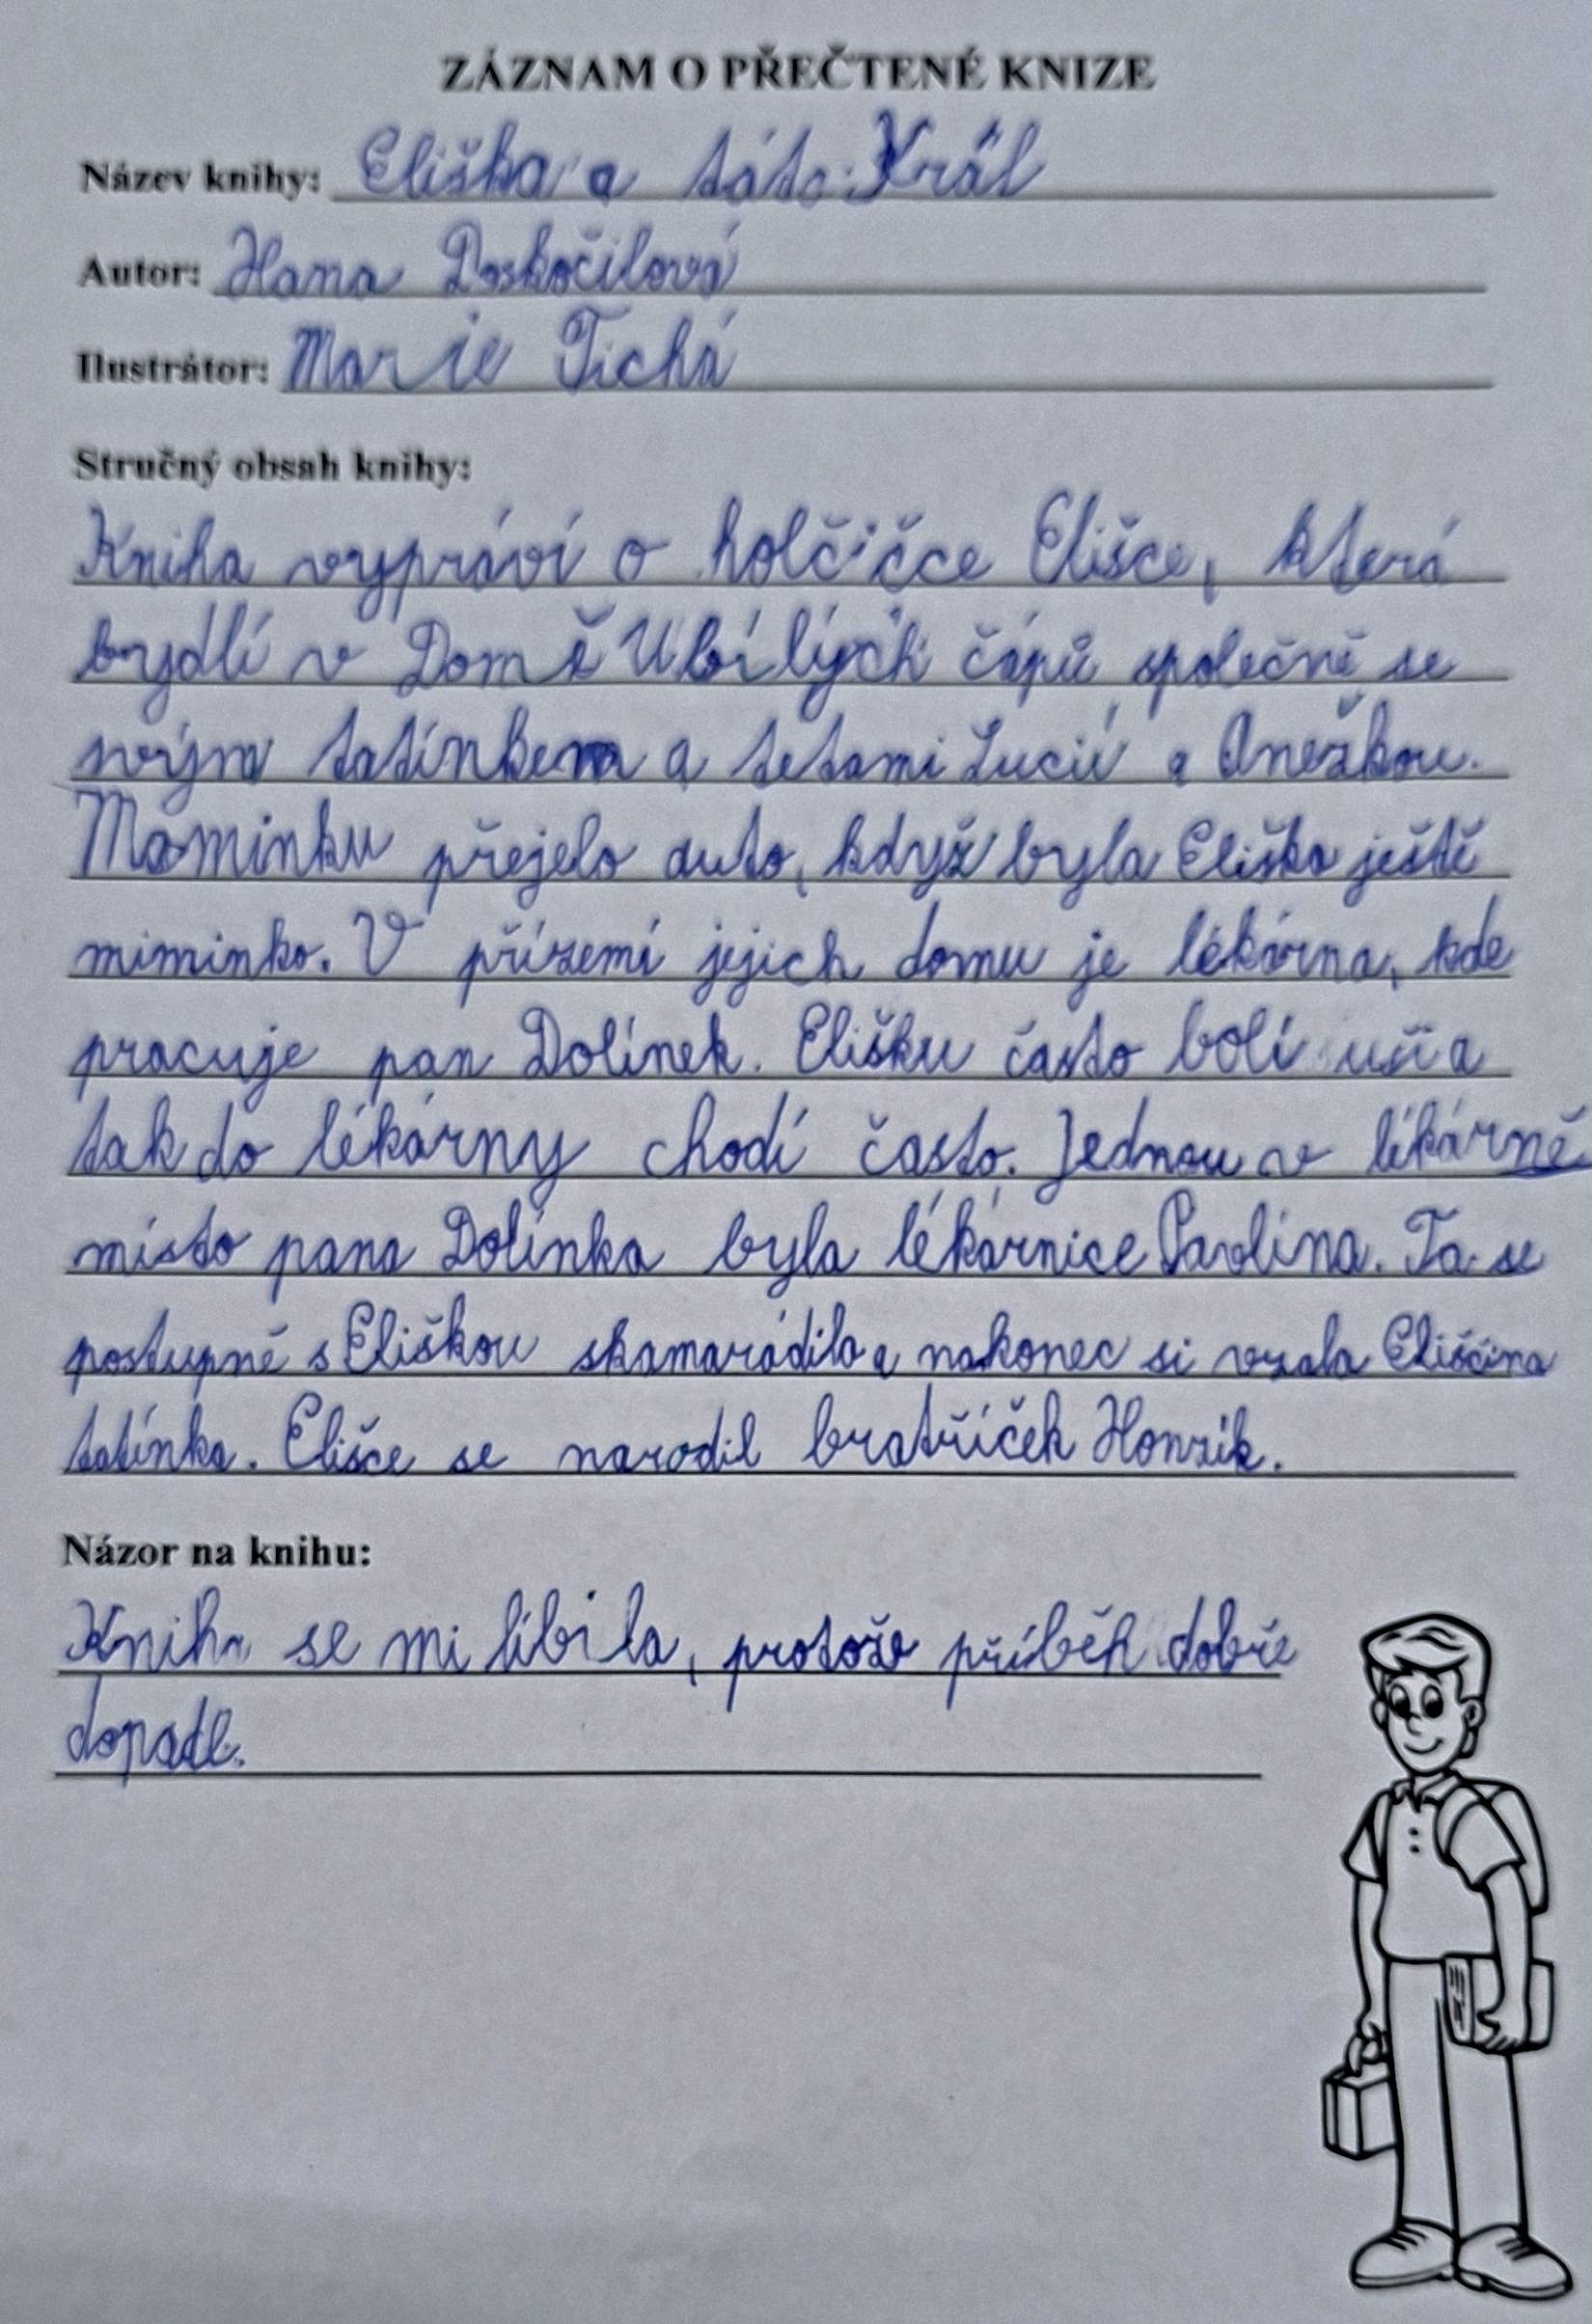 ZÁZNAM O PŘEČTENÉ KNIZE
Název knihy: Eliška a táta Král
Autor: Hana Doskočilová
Ilustrátor: Marie Tichá
Stručný obsah knihy:
Kniha vypráví o holčičce Elišce, která
bydlí v Domě U bílých čápů společně se
svým tatínkem a tetami Lucií a Anežkou.
Maminku přejelo auto, když byla Eliška ještě
miminko. V přízemí jejich domu je lékárna, kde
pracuje pan Dolínek. Elišku často bolí uši a
tak do lékárny chodí často. Jednou v lékárně
místo pana Dolínka byla lékárnice Pavlína. Ta se
postupně s Eliškou skamarádila a nakonec si vzala Eliščina
tatínka. Elišce se narodil bratříček Honzík.
Názor na knihu:
Kniha se mi líbila, protože příběh dobře
dopadl.